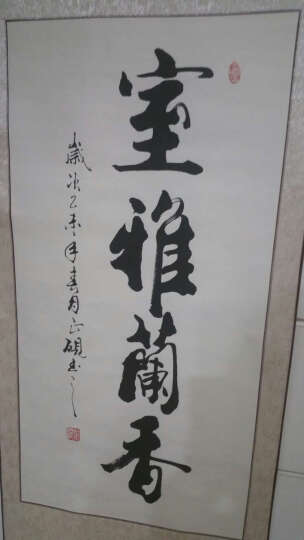 室雅蘭香
歲次乙未年春月正硯書之